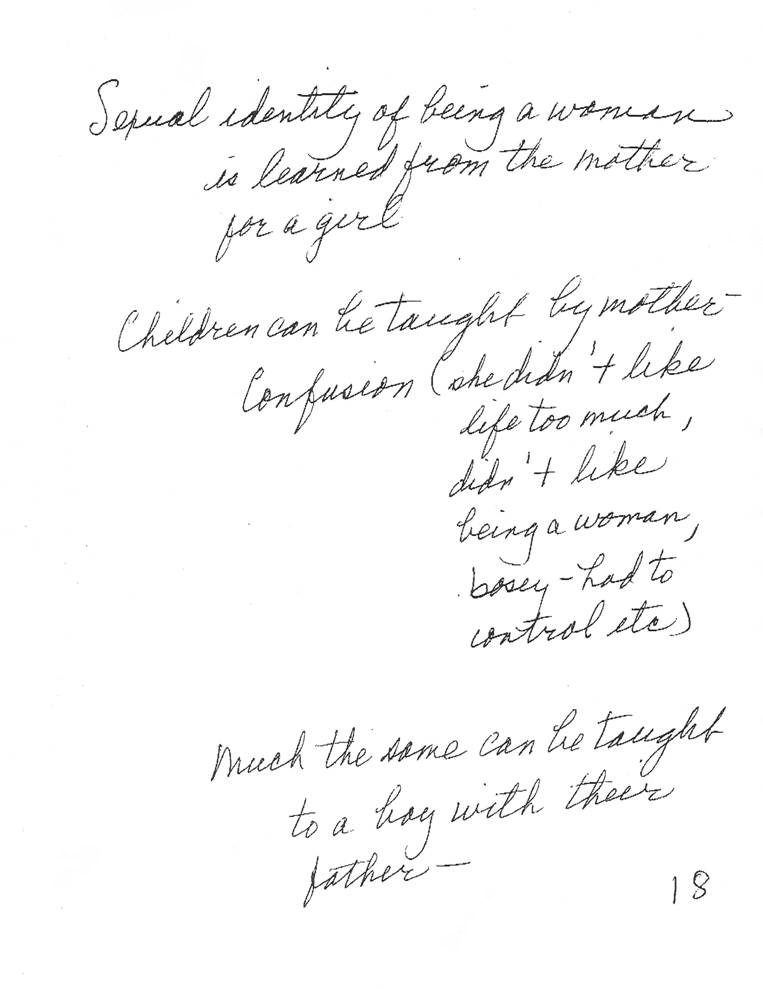 Sexual identity of being a woman
is learned from the mother
for a girl
Children can be taught by mother-
Confusion (she didn't like
life too much,
didn't like
being a woman,
bosey - had to
control etc)
Much the same can be taught
to a boy with their
father -
18